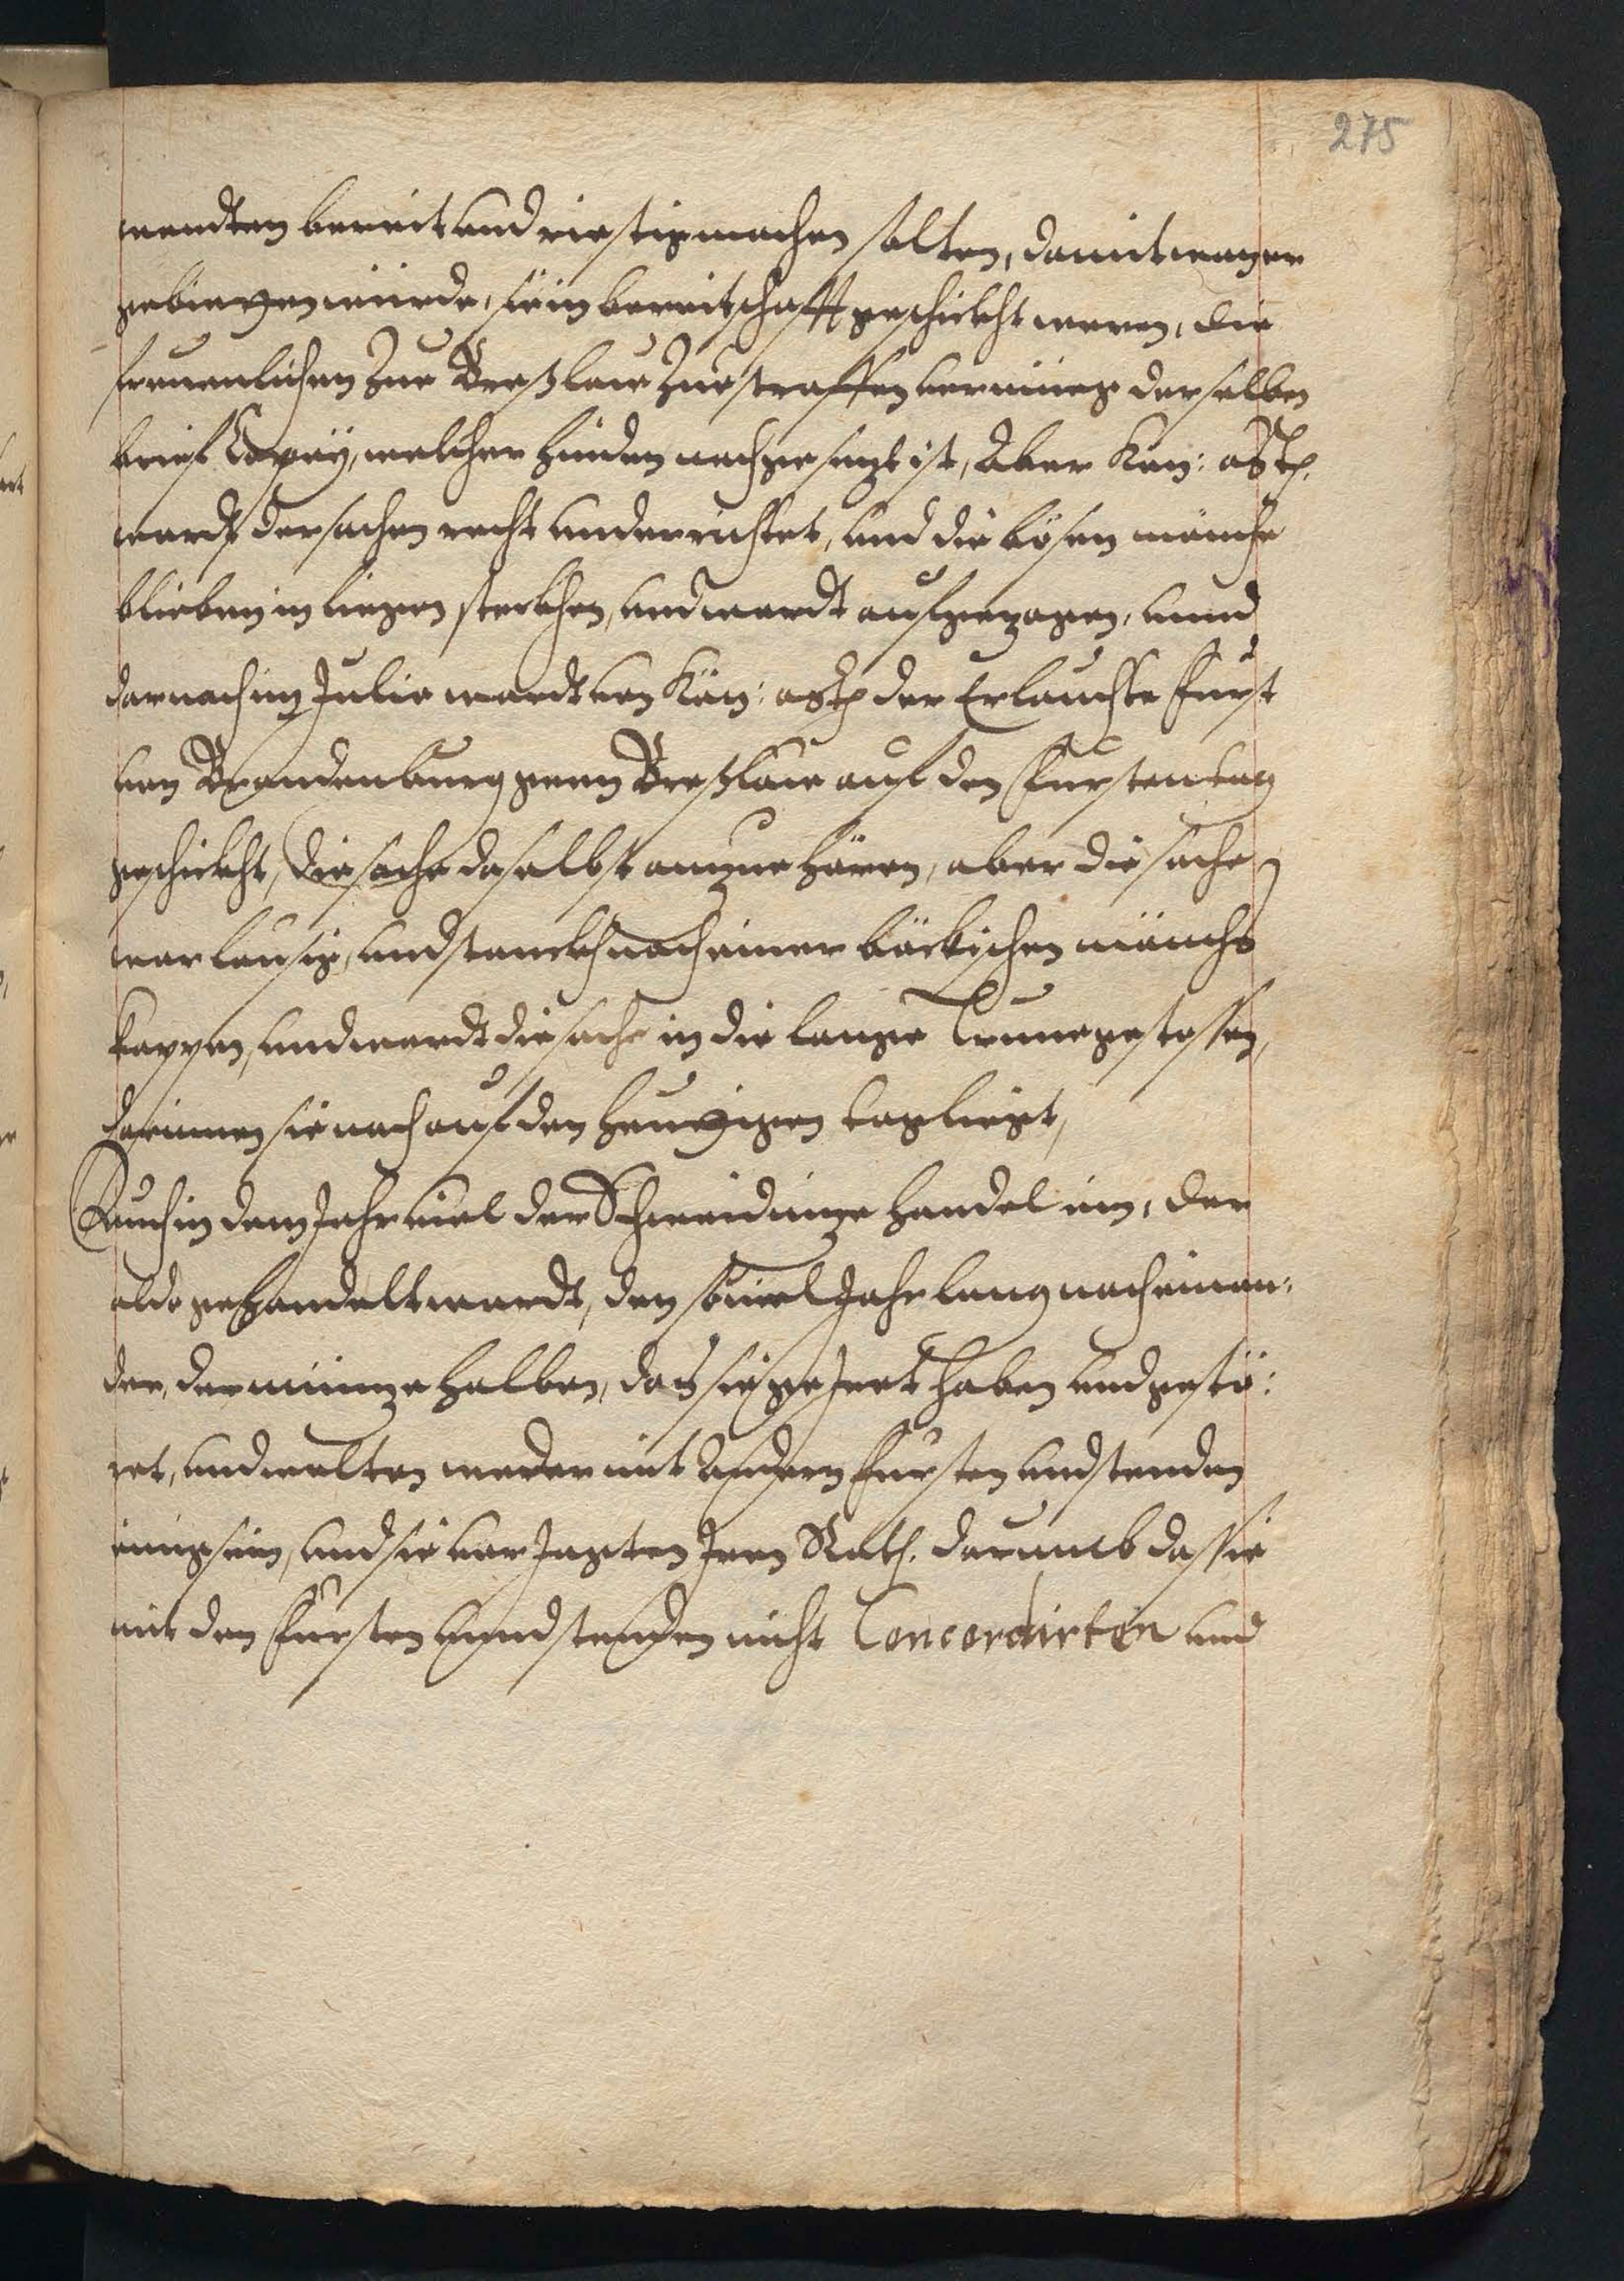 275
wendten bereit und riestig machen solten, damit wan er
gebietten würde, sie in bereitschafft geschickht weren, die
freuenlichen Zue Breßlaw Zue straffen vermüg derselben
brief Copey, welcher hinden nach gesezt ist, Aber Kön: Mtt.
wardt der sachen recht underrichtet, und die bösen mönche
blieben in liegen steckhen, und wardt aufgezogen, unnd
darnach im Julio wardt von Kön: Mtt der Erlauchte Furst
von Brandenburg genn Breßlaw auf den Furstentag
geschickht, die sache daselbst anzue hören, aber die sache
war lausig, und stanckh nach einer böckischen mönchs
kappen, und wardt die sache in die lange Trune gestossen,
darinnen sie noch auf den heuttigen tag liegt,
Auch in dem Jahr viel der Schweidnize handel ein, der
aldo gehandelt wardt, den souiel Jahr lang nach einan:
der, der münze halben, das sie geJrret haben und gestö:
ret, und wolten weder mit Andern Fursten und stenden
einig sein, und sie verJagten Jren Rath. darumb das sie
mit den Fursten unnd stenden nicht Concordirten und